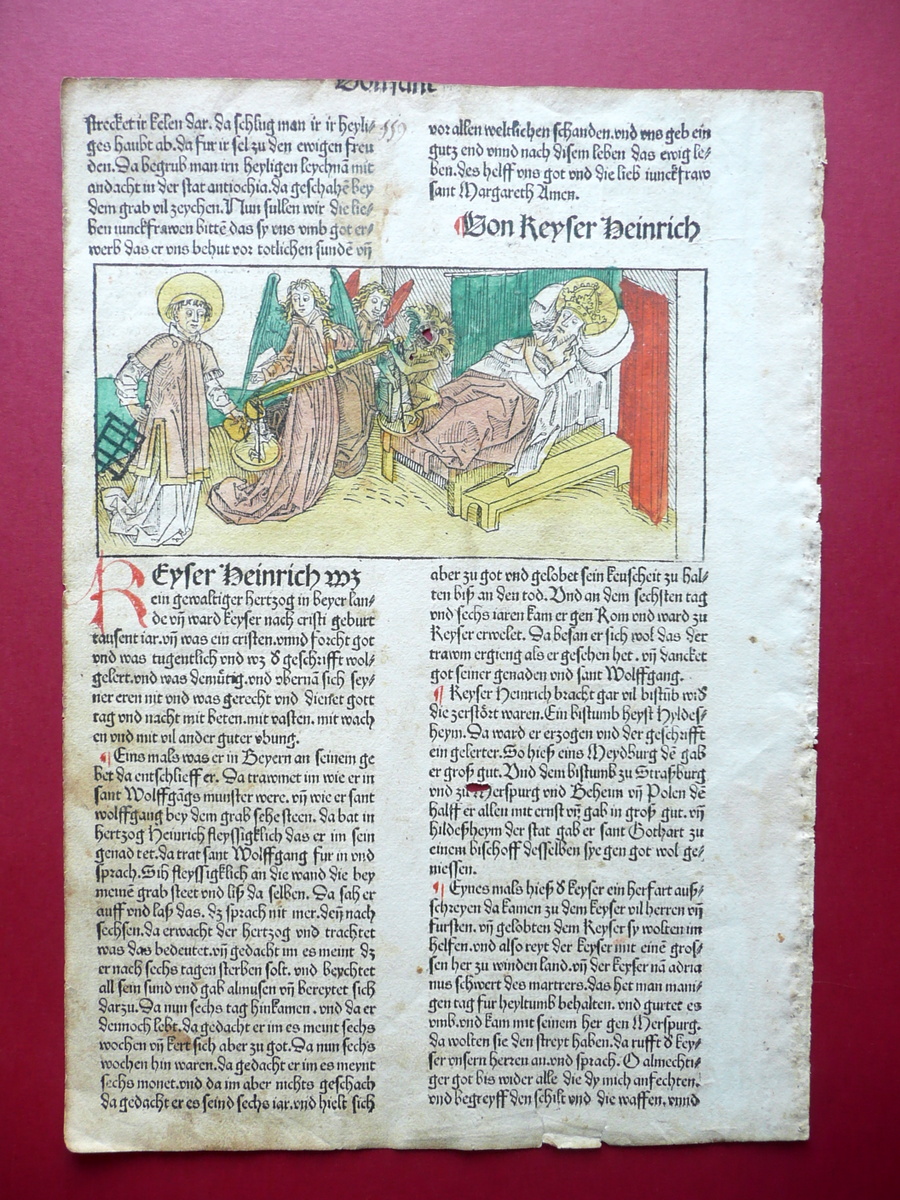 strecket ir kelen dar. da schlug man ir ir heyli⸗
ges haubt ab. da fur ir sel zu den ewigen freu
den. Da begrub man irn heyligen leychnã mit
andacht in der stat antiochia. da geschahẽ bey
dem grab vil zeychen. Nun sullen wir die lie⸗
ben iunckfrawen bittẽ das sy vns vmb got er⸗
werb das er vns behut vor totlichen sundẽ vñ
vor allen weltlichen schanden. vnd vns geb ein
gutz end vnnd nach disem leben das ewig le⸗
ben. des helff vns got vnd die lieb iunckfraw
sant Margareth Amen.
¶ Von Keyser Heinrich
KEyser Heinrich wz
ein gewaltiger hertzog in beyer lan⸗
de vñ ward keyser nach cristi geburt
tausent iar. vñ was ein cristen. vnnd forcht got
vnd was tugentlich vnd wz d̕ geschrifft wol⸗
gelert. vnd was demütig. vnd vbernã sich sey⸗
ner eren nit vnd was gerecht vnd dienet gott
tag vnd nacht mit beten. mit vasten. mit wach
en vnd mit vil ander guter vbung.
¶ Eins mals was er in Beyern an seinem ge
bet da entschlieff er. Da trawmet im wie er in
sant Wolffgãgs munster were. vñ wie er sant
wolffgang bey dem grab sehe steen. da bat in
hertzog Heinrich fleyssigklich das er im sein
genad tet. da trat sant Wolffgang fur in vnd
sprach. Sih fleyssigklich an die wand die bey
meinẽ grab steet vnd liß da selben. Da sah er
auff vnd laß das. dz sprach nit mer. deñ nach
sechsen. da erwacht der hertzog vnd trachtet
was das bedeutet. vñ gedacht im es meint dz
er nach sechs tagen sterben solt. vnd beychtet
all sein sund vnd gab almusen vñ bereytet sich
darzu. Da nun sechs tag hinkamen. vnd da er
dennoch lebt. da gedacht er im es meint sechs
wochen vñ kert sich aber zu got. Da nun sechs
wochen hin waren. da gedacht er im es meynt
sechs monet. vnd da im aber nichts geschach
da gedacht er es seind sechs iar. vnd hielt sich
aber zu got vnd gelobet sein keuscheit zu hal⸗
ten biß an den tod. Vnd an dem sechsten tag
vnd sechs iaren kam er gen Rom vnd ward zu
Keyser erwelet. Da besan er sich wol das der
trawm ergieng als er gesehen het. vñ dancket
got seiner genaden vnd sant Wolffgang.
¶ Keyser Heinrich bracht gar vil bistũb wid̕
die zerstört waren. Ein bistumb heyst Hyldes⸗
heym. Da ward er erzogen vnd der geschrifft
ein gelerter. So hieß eins Meydburg dẽ gab
er groß gut. Vnd dem bistumb zu Straßburg
vnd zu Merspurg vnd Behein vñ Polen dẽ
halff er allen mit ernst vñ gab in groß gut. vñ
hildeßheym der stat gab er sant Gothart zu
einem bischoff desselben sye gen got wol ge⸗
niessen.
¶ Eynes mals hieß d̕ keyser ein herfart auß⸗
schreyen da kamen zu dem keyser vil herren vñ
fursten. vñ gelobten dem Keyser sy wolten im
helfen. vnd also reyt der keyser mit einẽ gros⸗
sen her zu winden land. vñ der keyser nã adria
nus schwert des martrers. das het man mani⸗
gen tag fur heyltumb behalten. vnd gurtet es
vmb. vnd kam mit seinem her gen Merspurg.
da wolten sie den streyt haben. da rufft d̕ key⸗
ser vnsern herren an. vnd sprach. O almechti⸗
ger got bis wider alle die dy mich anfechten.
vnd begreyff den schilt vnd die waffen. vnnd